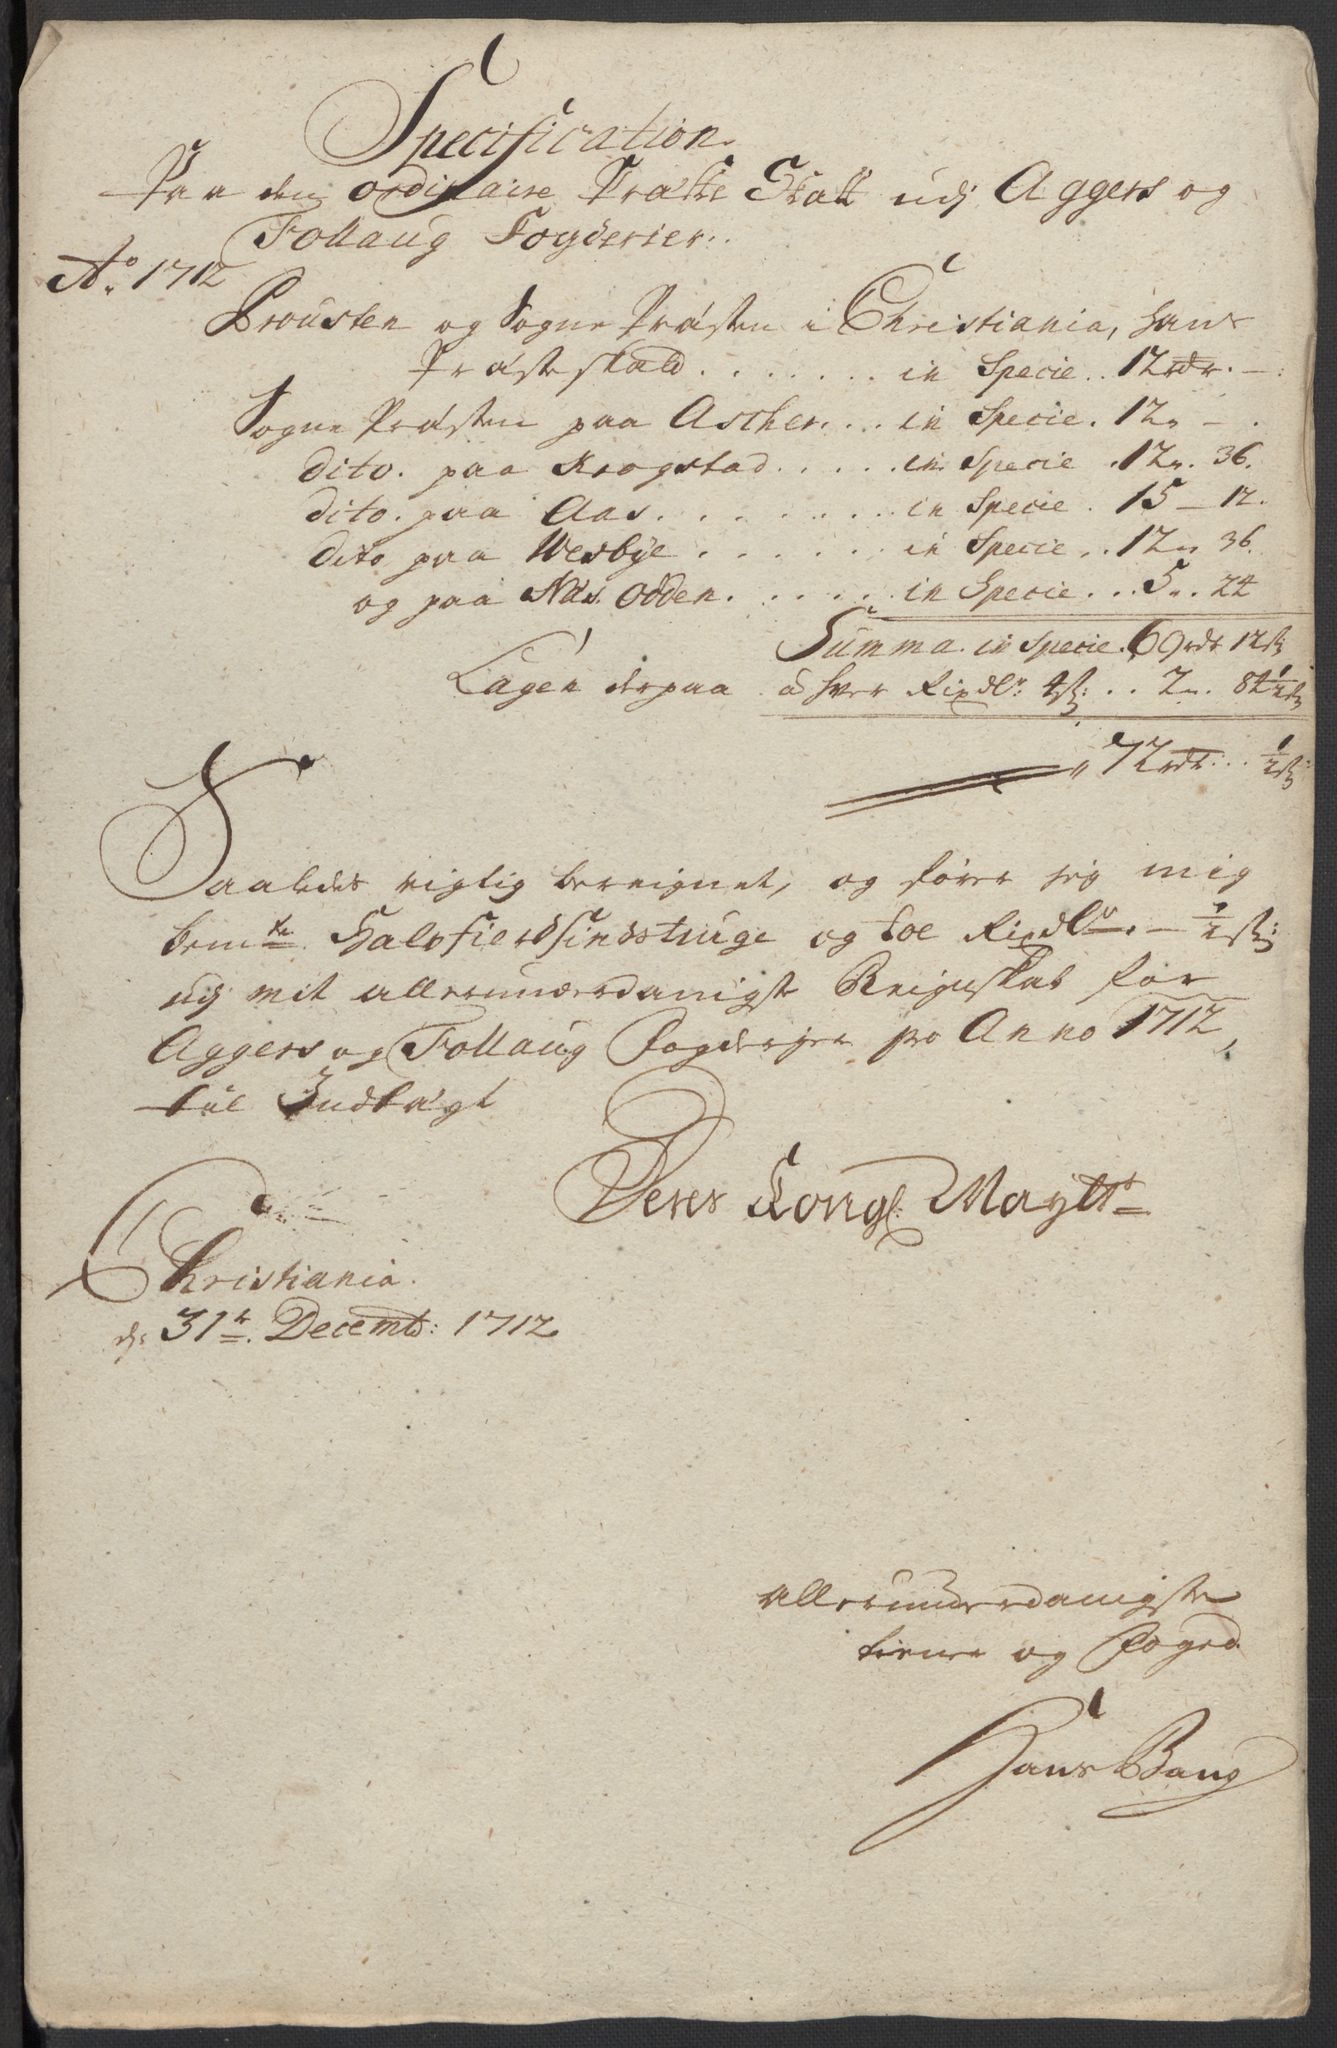 Specification
Paa den ordinaire Præste Skatt udj Aggers og
Follaug Fogderier.
Ao. 1712
Prousten og Sogne Præsten i Christiania, hans
Præste kald . . . . . . . in Specie . . 12 rdr. —
Sogne Præsten paa Ascher . . . in Specie . 12 „ — .
dito. paa Krogstad . . . . . in Specie . 12 „ . 36.
dito. paa Aas . . . . . . . . in Specie . 15 — 12.
dito paa Wesbye . . . . . . in Specie . . 12 „ 36.
og paa Næs Odden . . . . . . in Specie . . . 5 „ . 24
Summa in Specie . 69 rdr 12 s
Lagen derpaa à hver Rixdlr: 4 s: . . 2 „ . 84 1/2 s
„ 72 rdr: . . 1/2 s:
Saaledes rigtig bereignet, og fører jeg mig
bemte Halvfierdsindstiuge og toe Rixdlr. — 1/2 s:
udj mit allerunderdanigste Reignskab for
Aggers og Follaug Fogderjer pro Anno 1712,
till Indtægt
Deres Kongl: Maytts
Christiania
d: 31te. Decembr: 1712
allerunderdanigste
tiener og Foged
Hans Bang